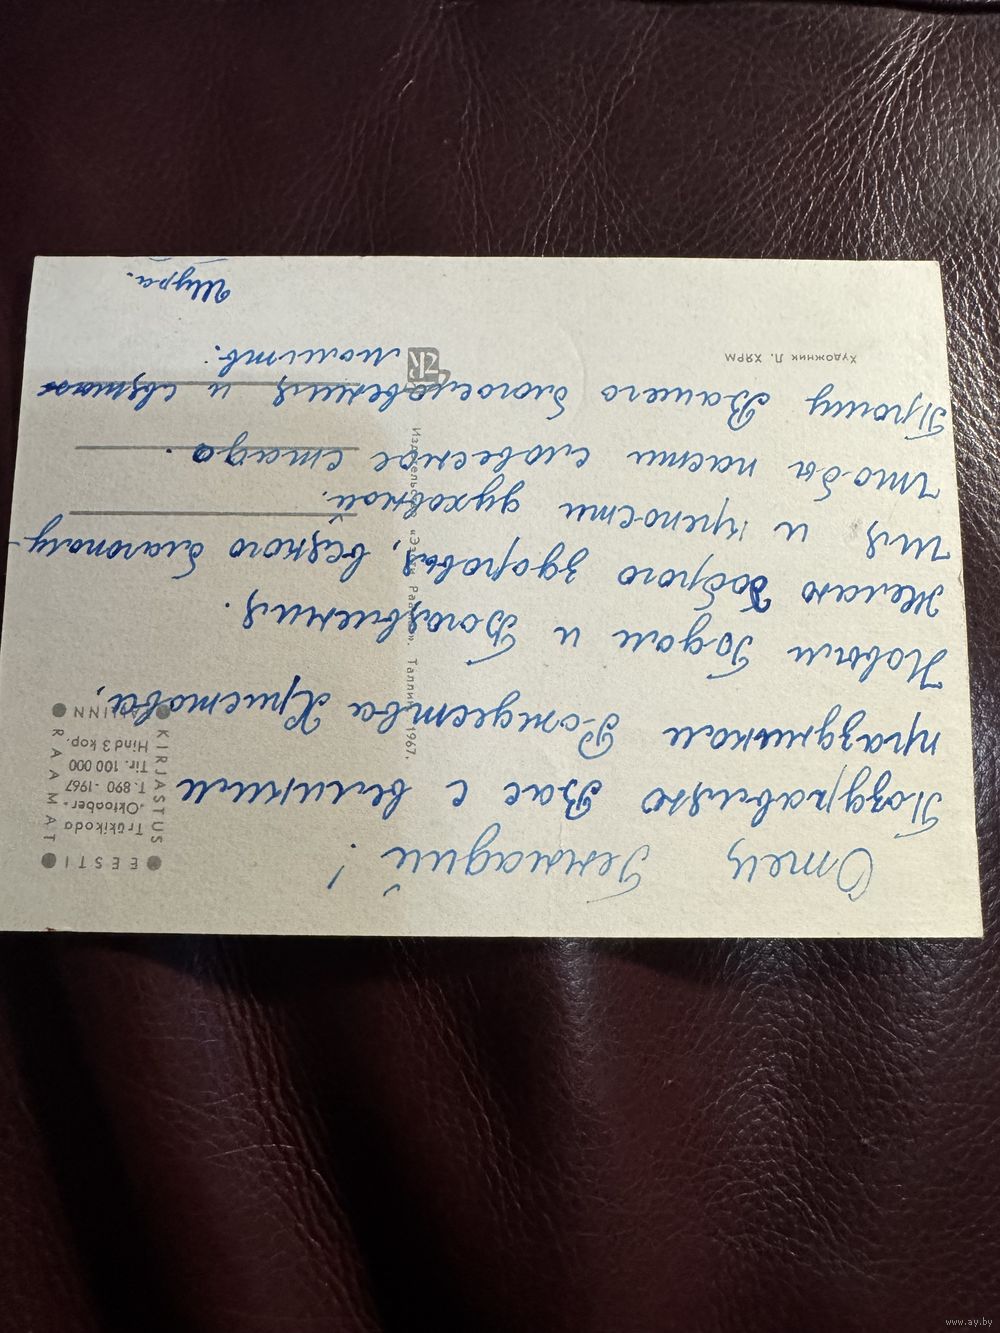 Отец Геннадий!
Поздравляю Вас с великим
праздником Рождества Христова,
Новым Годом и Богоявления.
Желаю доброго здоровья, всякого благополу-
чия и крепости духовной.
чтобы пасти словесное стадо.
Прошу Вашего благословения и святых
молитв.
Шура.
EESTI RAAMAT
KIRJASTUS TALLINN
Trükikoda
„Oktoober“
T. 890 - 1967
Tir. 100 000
Hind 3 kop.
Издательство «Ээсти Раамат». Таллин, 1967.
ER
Художник Л. ХЯРМ
www.ay.by